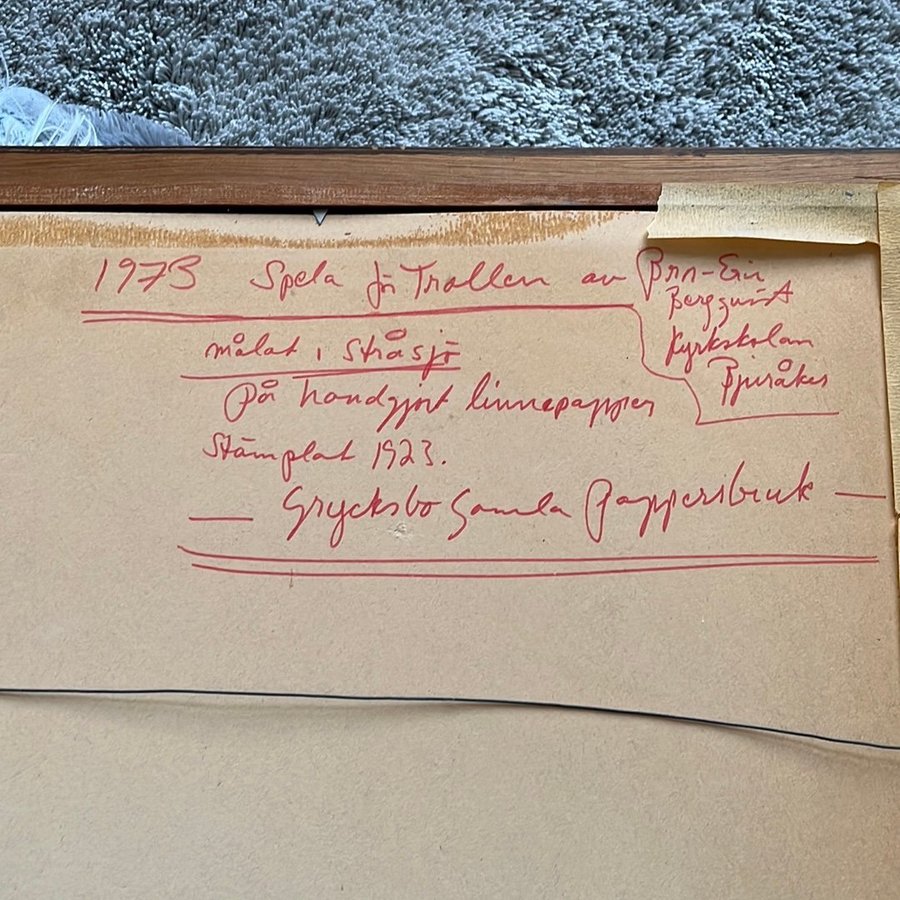 1973 Spela för Trollen av Brn-Ein
Bergqvist
Kyrkskolan
Bjuråker
målat i Stråsjö
på handgjort linnepapper
Stämplat 1923.
— Grycksbo Gamla Pappersbruk —